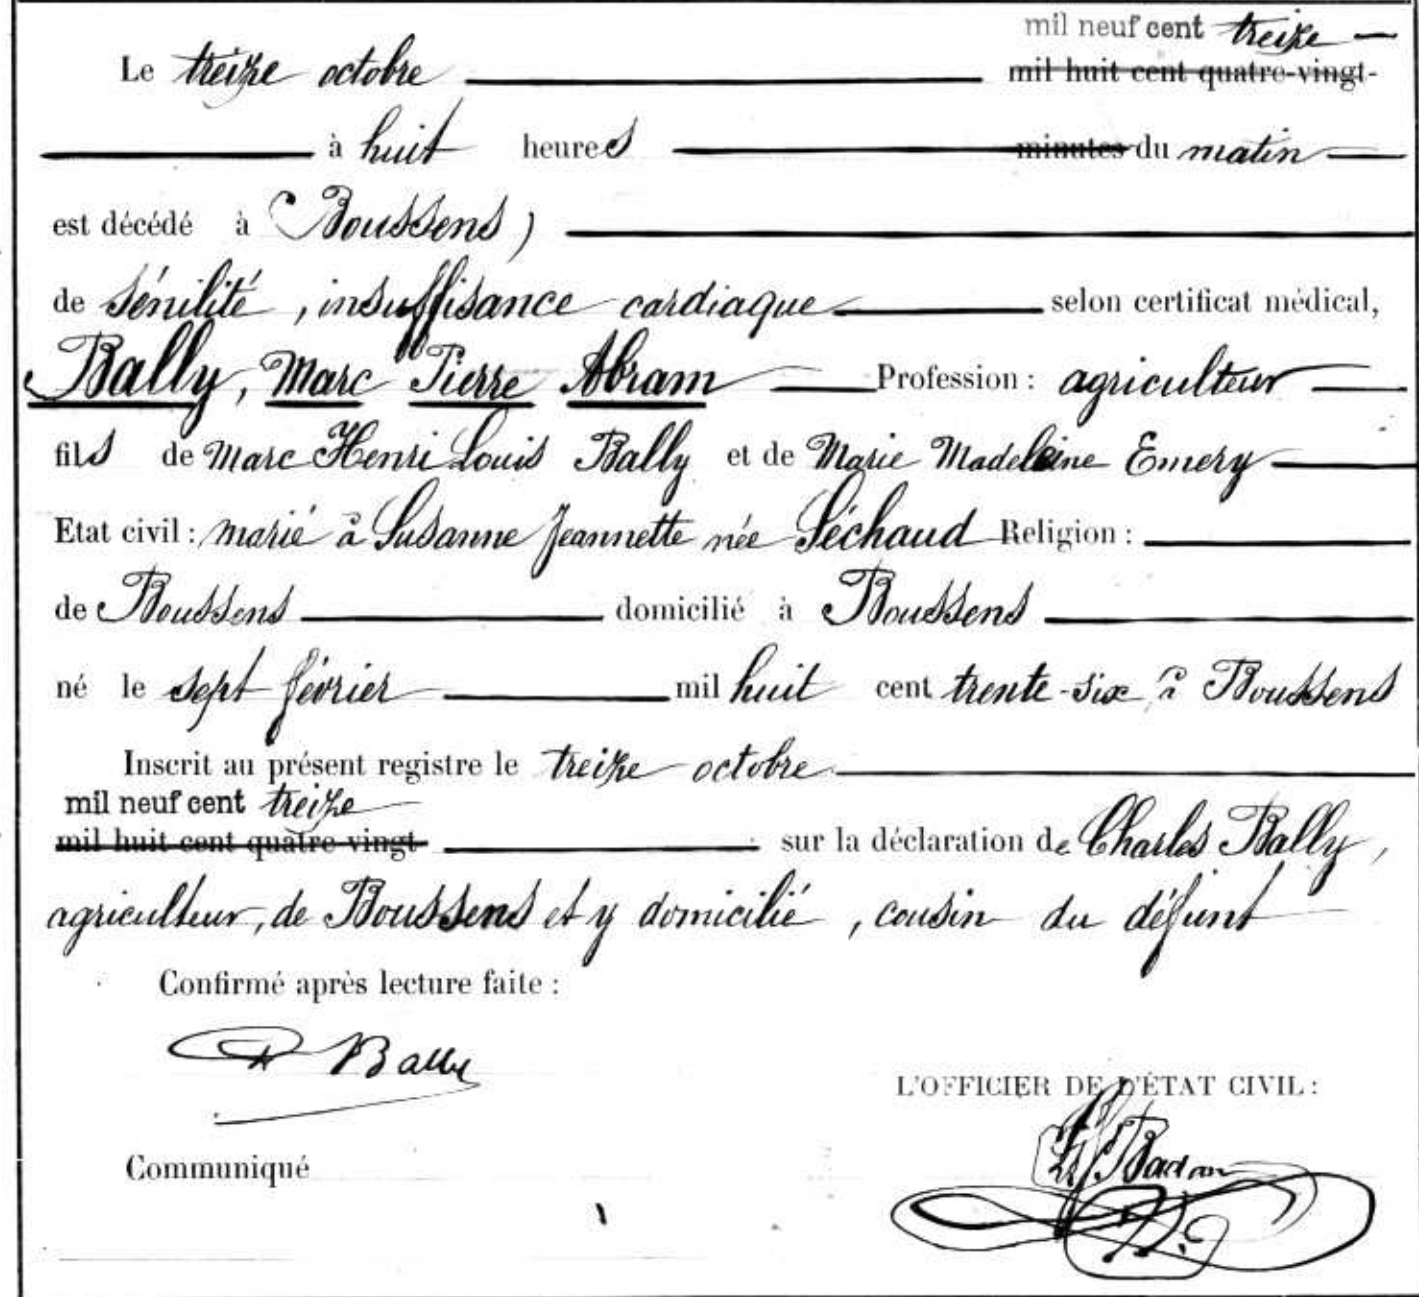 mil neuf cent treize
Le treize octobre mil huit cent quatre-vingt-
à huit heures minutes du matin
est décédé à Boussens,
de sénilité, insuffisance cardiaque selon certificat médical,
Bally, Marc Pierre Abram Profession : agriculteur
fils de Marc Henri Louis Bally et de Marie Madeleine Emery
Etat civil : marié à Susanne Jeannette née Séchaud Religion :
de Boussens domicilié à Boussens
né le sept février mil huit cent trente-six à Boussens
Inscrit au présent registre le treize octobre
mil neuf cent treize
mil huit cent quatre-vingt sur la déclaration de Charles Bally,
agriculteur, de Boussens et y domicilié, cousin du défunt
Confirmé après lecture faite :
Bally
L'OFFICIER DE L'ÉTAT CIVIL :
Communiqué